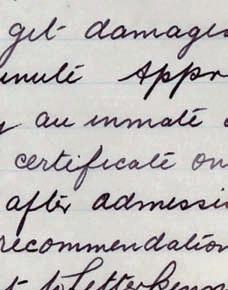 get damages
Appr
an inmate
certificate on
after admissi
recommendation
to Letterkenn